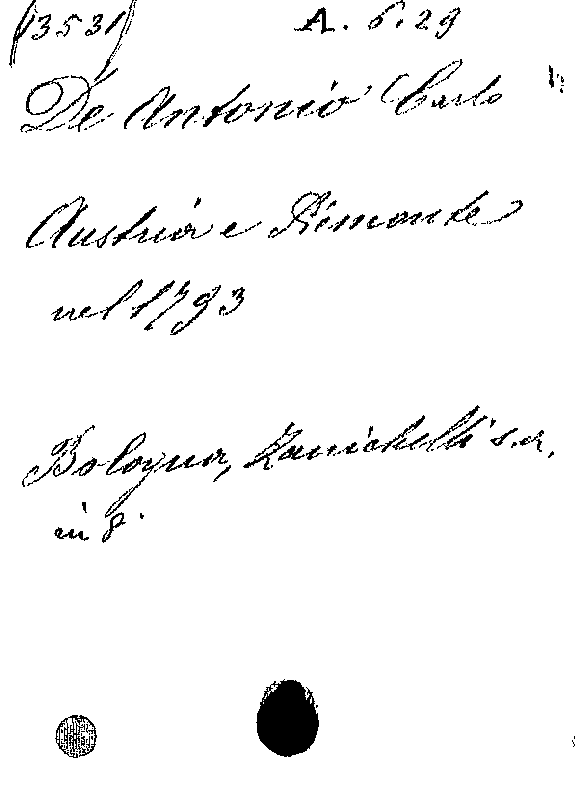 (3531) A. 6. 29
De Antonio Carlo
Austria e Piemonte
nel 1793
Bologna, Zanichelli s.a.
in 8.